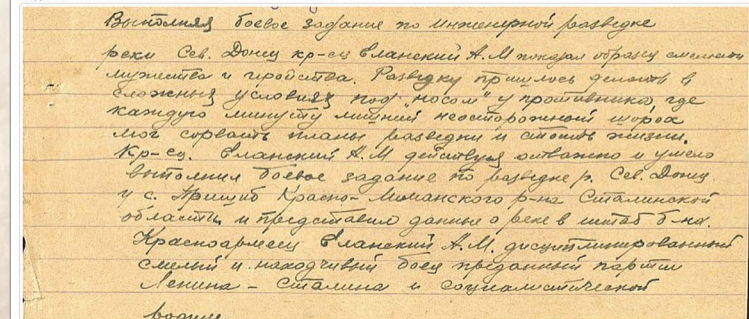 Выполняя боевое задание по инженерной разведке
реки Сев. Донец кр-ец Еланский А.М показал образец смелости
мужества и геройства. Разведку пришлось делать в
сложных условиях под "носом" у противника, где
каждую минуту лишний неосторожный шорох
мог сорвать планы разведки и стоить жизни.
Кр-ец. Еланский А.М действуя отважно и умело
выполнил боевое задание по разведке р. Сев. Донец
у с. Пришиб Красно-Лиманского р-на Сталинской
области и представил данные о реке в штаб б-на.
Красноармеец Еланский А.М. дисциплинированный
смелый и находчивый боец преданный партии
Ленина - Сталина и социалистической
родине